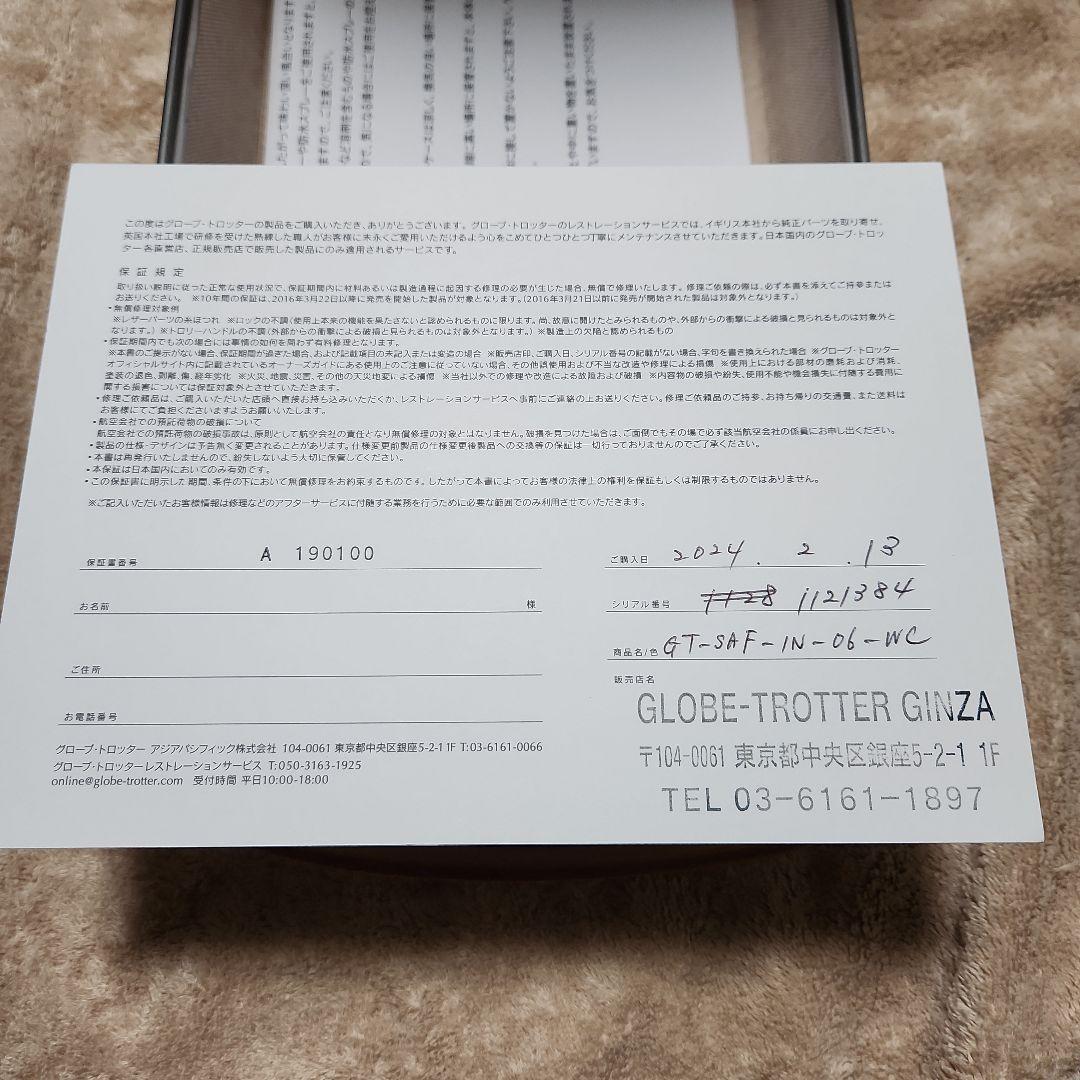 この度はグローブ・トロッターの製品をご購入いただき、ありがとうございます。グローブ・トロッターのレストレーションサービスでは、イギリス本社から純正パーツを取り寄せ、
英国本社工場で研修を受けた熟練した職人がお客様に末永くご愛用いただけるよう心をこめてひとつひとつ丁寧にメンテナンスさせていただきます。日本国内のグローブ・トロッ
ター各直営店、正規販売店で販売した製品にのみ適用されるサービスです。
保証規定
取り扱い説明に従った正常な使用状況で、保証期間内に材料あるいは製造過程に起因する修理の必要が生じた場合、無償で修理いたします。修理ご依頼の際は、必ず本書を添えてご持参または
お送りください。 ※10年間の保証は、2016年3月22日以降に発売を開始した製品が対象となります。(2016年3月21日以前に発売が開始された製品は対象外となります。)
・無償修理対象例
※レザーパーツの糸ほつれ ※ロックの不調(使用上本来の機能を果たさないと認められるものに限ります。尚、故意に開けたとみられるものや、外部からの衝撃による破損と見られるものは対象外と
なります。) ※トロリーハンドルの不調(外部からの衝撃による破損と見られるものは対象外となります。) ※製造上の欠陥と認められるもの
・保証期間内でも次の場合には事情の如何を問わず有料修理となります。
※本書のご提示がない場合、保証期間が過ぎた場合、および記載項目の未記入または変造の場合 ※販売店印、ご購入日、シリアル番号の記載がない場合、字句を書き換えられた場合 ※グローブ・トロッター
オフィシャルサイト内に記載されているオーナーズガイドにある使用上のご注意に従っていない場合、その他誤使用および不当な改造や修理による損傷 ※使用上における部材の磨耗および消耗、
塗装の退色、剥離、傷、経年劣化 ※火災、地震、災害、その他の天災地変による損傷 ※当社以外での修理や改造による故障および破損 ※内容物の破損や紛失、使用不能や機会損失に付随する費用に
関する損害については保証対象外とさせていただきます。
・修理ご依頼品は、ご購入いただいた店頭へ直接お持ち込みいただくか、レストレーションサービスへ事前にご連絡の上お送りください。修理ご依頼品のご持参、お持ち帰りの交通費、また送料は
お客様にてご負担くださいますようお願いいたします。
・航空会社での預託荷物の破損について
航空会社での預託荷物の破損事故は、原則として航空会社の責任となり無償修理の対象とはなりません。破損を見つけた場合は、ご面倒でもその場で必ず該当航空会社の係員にお申し出ください。
・製品の仕様・デザインは予告無く変更されることがあります。仕様変更前製品の仕様変更後製品への交換等の保証は一切行っておりませんのでご了承ください。
・本書は再発行いたしませんので、紛失しないよう大切に保管してください。
・本保証は日本国内においてのみ有効です。
・この保証書に明示した期間、条件の下において無償修理をお約束するものです。したがって本書によってお客様の法律上の権利を保証もしくは制限するものではありません。
※ご記入いただいたお客様情報は修理などのアフターサービスに付随する業務を行うために必要な範囲でのみ利用させていただきます。
保証書番号 A 190100
お名前 様
ご住所
お電話番号
ご購入日 2024.2.13
シリアル番号 1128 1121384
商品名/色 GT-SAF-IN-06-WC
販売店名
GLOBE-TROTTER GINZA
〒104-0061 東京都中央区銀座5-2-1 1F
TEL 03-6161-1897
グローブ・トロッター アジアパシフィック株式会社 104-0061 東京都中央区銀座5-2-1 1F T:03-6161-0066
グローブ・トロッターレストレーションサービス T:050-3163-1925
online@globe-trotter.com 受付時間 平日10:00-18:00